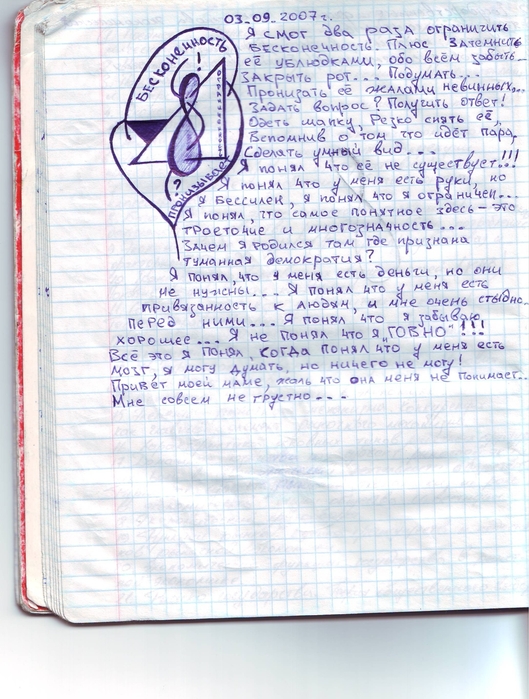 03.09.2007г.
Я смог два раза ограничить
Бесконечность. Плюс затемнить
её ублюдками, обо всём забыть...
Закрыть рот... Подумать...
Пронизать её жалами невинных...
Задать вопрос? Получить ответ!
Одеть шапку, Резко снять её,
Вспомнив о том что идёт пара,
Сделать умный вид...
Я понял что её не существует...!!!
Я понял что у меня есть руки, но
я Бессилен, я понял что я ограничен...
Я понял, что самое понятное здесь - это
троеточие и многозначность...
Зачем я родился там где признана
туманная демократия?
Я понял, что у меня есть деньги, но они
не нужны.... Я понял что у меня есть
привязанность к людям, и мне очень стыдно..
перед ними... Я понял что я забываю
хорошее.... Я не понял что я „ГОВНО"!!!
Всё это я понял, когда понял что у меня есть
мозг, я могу думать, но ничего не могу!
Привет моей маме, жаль что она меня не понимает...
Мне совсем не грустно...
Бесконечность
!
?
пронизывает